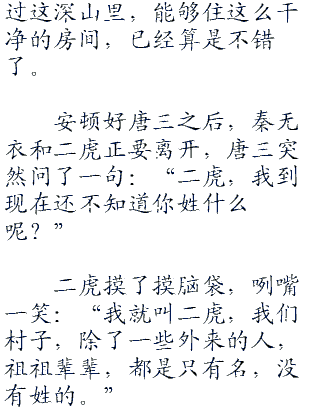 过这深山里，能够住这么干
净的房间，已经算是不错
了。
安顿好唐三之后，秦无
衣和二虎正要离开，唐三突
然问了一句：“二虎，我到
现在还不知道你姓什么
呢？”
二虎摸了摸脑袋，咧嘴
一笑：“我就叫二虎，我们
村子，除了一些外来的人，
祖祖辈辈，都是只有名，没
有姓的。”